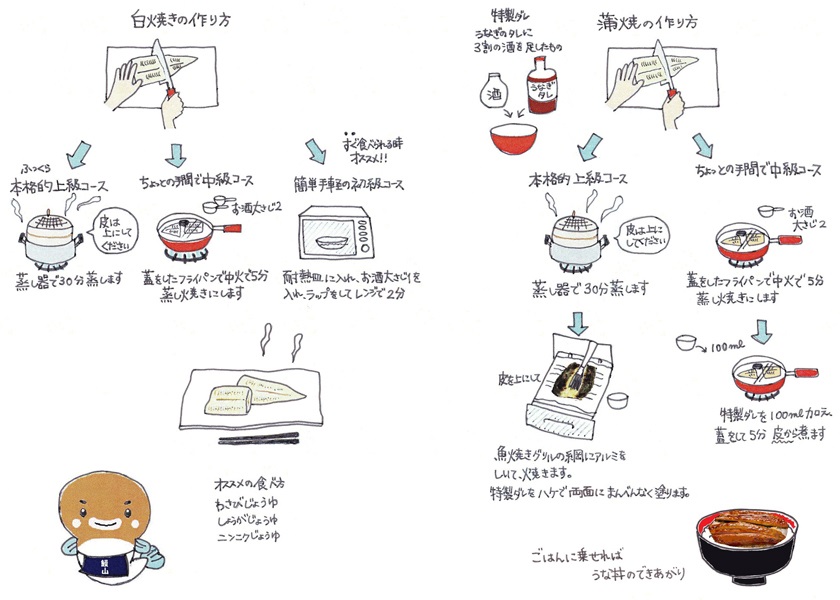 白火焼きの作り方
すぐ食べられる時
オススメ!!
ふっくら
本格的上級コース
ちょっとの手間で中級コース
簡単手軽の初級コース
お酒大さじ2
皮は
上にして
ください
蒸し器で30分蒸します
蓋をしたフライパンで中火で5分
蒸し焼きにします
耐熱皿に入れ、お酒大さじ1を
入れ、ラップをしてレンジで2分
オススメの食べ方
わさびじょうゆ
しょうがじょうゆ
ニンニクじょうゆ
鰻山
特製ダレ
うなぎのタレに
3割の酒を足したもの
酒
うなぎ
タレ
蒲焼の作り方
本格的上級コース
ちょっとの手間で中級コース
皮は上に
してください
お酒
大さじ2
蒸し器で30分蒸します
蓋をしたフライパンで中火で5分
蒸し焼きにします
皮を上にして
100ml
魚焼きグリルの網にアルミを
しいて、焼きます。
特製ダレをハケで両面にまんべんなく塗ります。
特製ダレを100ml加え、
蓋をして5分 皮から煮ます
ごはんに乗せれば
うな丼のできあがり